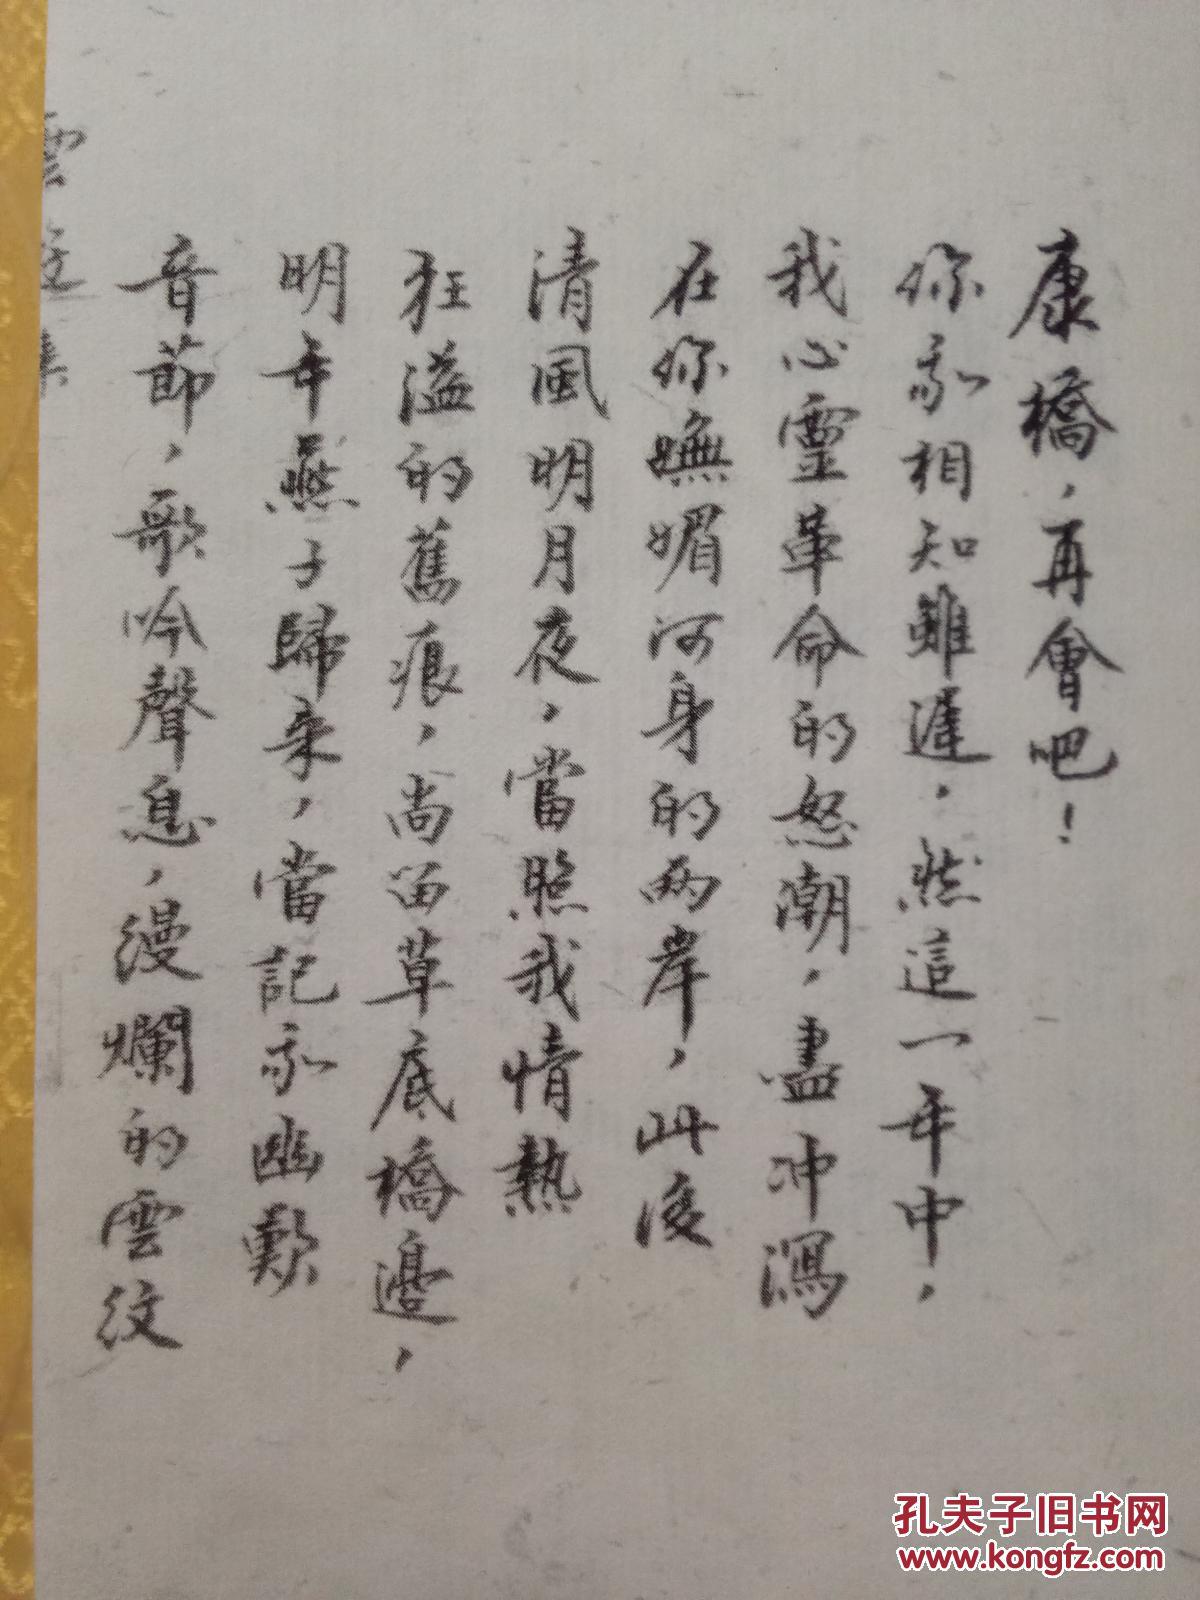 康橋，再會吧！
你我相知雖遲，然這一年中，
我心靈革命的怒潮，盡冲瀉
在你嫵媚河身的兩岸，此後
清風明月夜，當照我情熱
狂溢的舊痕，尚留草底橋邊，
明年燕子歸来，當記我幽歎
音節，歌吟聲息，縵爛的雲紋
雲
孔夫子旧书网
www.kongfz.com